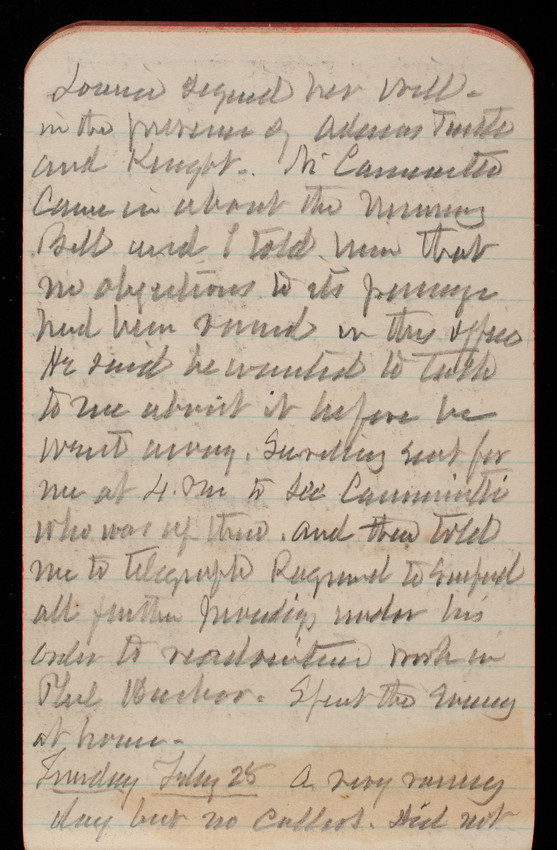 Louise signed her will -
in the presence of Adams Tuttle
and Knight. Mr Caminetti
came in about the Mining
Bill and I told him that
no objections to its passage
had been raised in this office
He said he wanted to talk
to me about it before he
went away. sent for
me at 4. PM to see Caminetti
who was up there. and then told
me to telegraph Raymond to suspend
all further proceedings under his
order to work in
Phil Harbor. Spent the Evening
at home -
Tuesday Feby 28 A very rainy
day but no callers. Did not